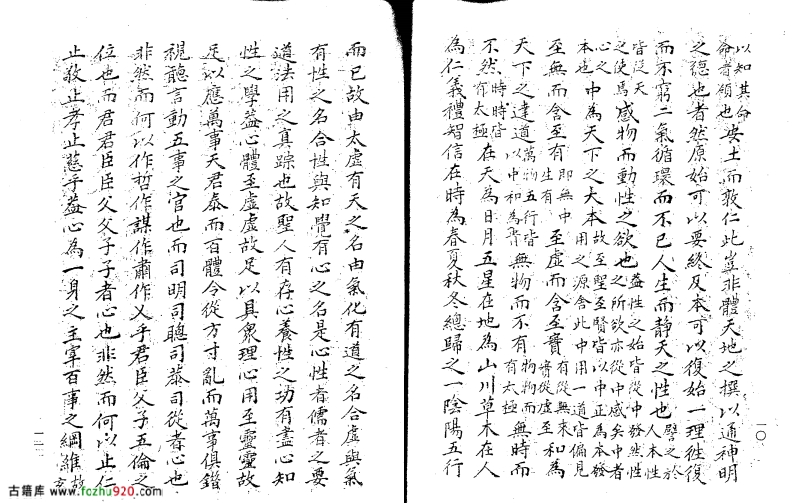 以知其命
命者領也安土而敦仁此豈非體天地之撰以通神明
之德也者然原始可以要終反本可以復始一理往復
而不窮二氣循環而不已人生而靜天之性也譬之於人本性
皆從天之使焉感物而動性之欲也蓋性之始皆從中發然性之所欲亦從中感矣中者
心之本也中為天下之大本故至聖至賢皆以中正為本發用之源舍此中用一道皆偏見
至無而含至有即無中生有至虛而含至實有從無來實從虛至和為
天下之達道萬物五行皆以中和為實無物而不有物物而有太極無時而
不然時時皆有太極在天為日月五星在地為山川草木在人
為仁義禮智信在時為春夏秋冬總歸之一陰陽五行
一〇
而已故由太虛有天之名由氣化有道之名合虛與氣
有性之名合性與知覺有心之名是心性者儒者之要
道法用之真踪也故聖人有存心養性之功有盡心知
性之學蓋心體至虛虛故足以具衆理心用至靈靈故
足以應萬事天君泰而百體令從方寸亂而萬事俱錯
視聽言動五事之官也而司明司聰司恭司從者心也
非然而何以作哲作謀作肅作乂乎君臣父子五倫之
位也而君君臣臣父父子子者心也非然而何以止仁
止敬止孝止慈乎蓋心為一身之主宰百事之綱維故
一一
古籍库：www.fczhu920.com